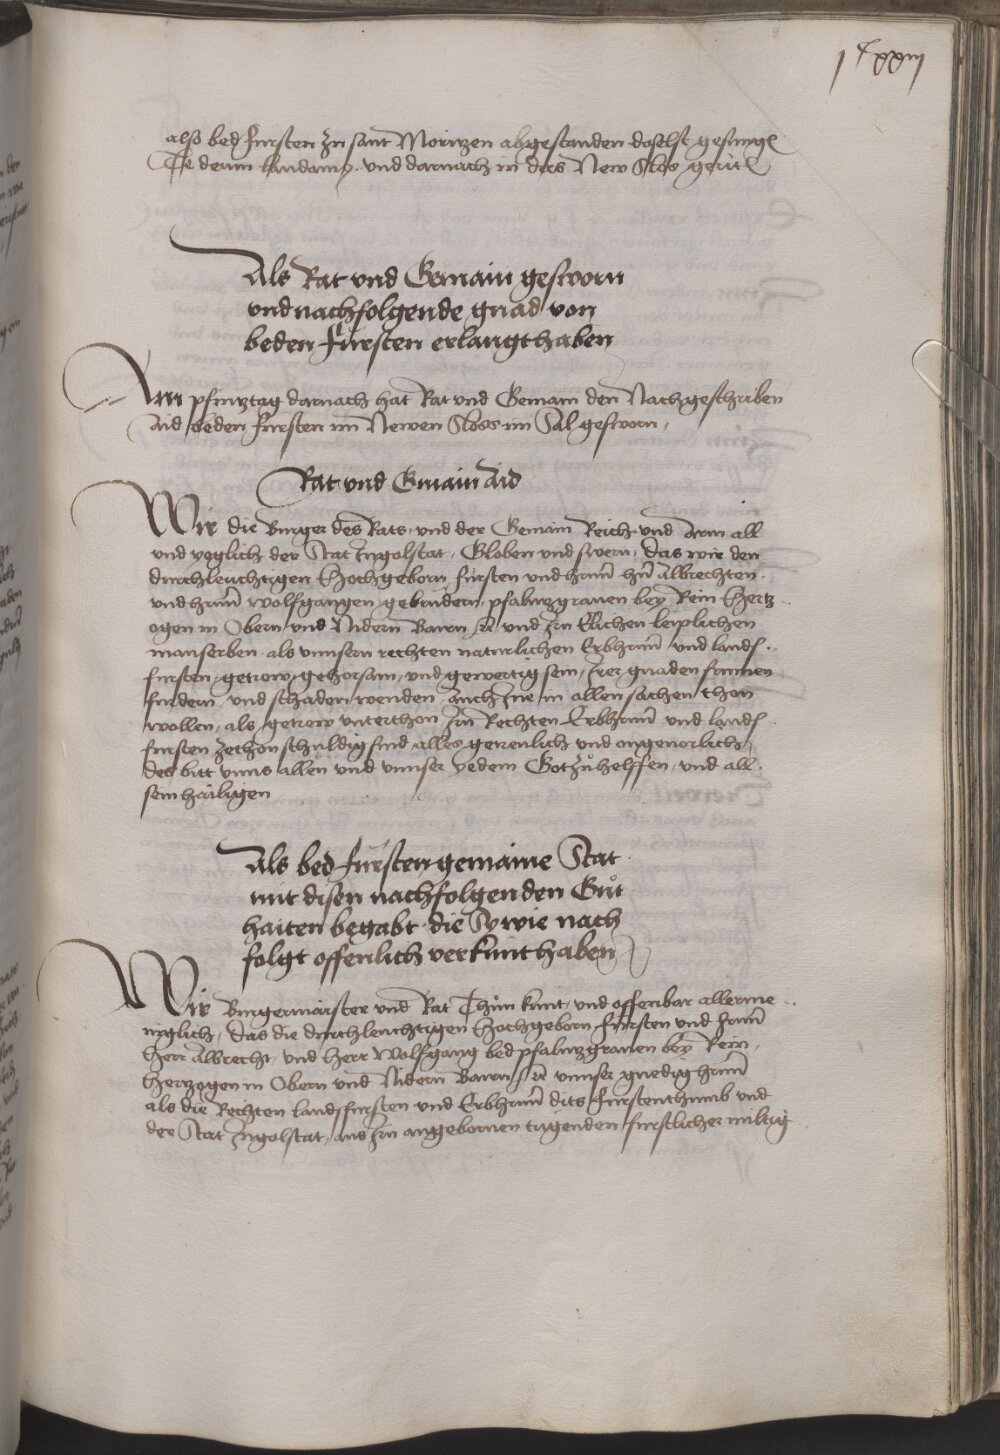 1 c xxiij
also bed fursten zu sant Moritzen abgestanden daselbst gesungen
Te deum laudamus. und darnach in das New Slos geriten
Als Rat vnd Gemain gesworn
vnd nachfolgende gnad von
beden fürsten erlangt haben
Am pfintztag darnach hat Rat vnd Gemain den Nachgeschriben
Aid beden fursten im Newen Sloss im Sal gesworn,
Rat vnd Gmain Aid
Wir die Burger des Rats, vnd der Gemain Reich vnd Arm all
vnd yeglich der Stat Ingolstat, Globen vnd swern, Das wir den
durchleuchtigen Hochgeborn fursten vnd herrn hern Albrechten.
vnd herrn Wolfgangen gebrudern, pfaltzgrauen bey Rein Hertz
ogen in Obern vnd Nidern Bairn etc vnd irn Elichen leiplichen
manserben als vnnsern rechten naturlichen Erbherrn vnd landſ
fursten, getrew, gehorsam, vnd gewertig sein, Irer gnaden frumen
furdern, vnd schaden wenden auch Ine in allen sachen thon
wollen, als getrew vnterthon irn Rechten Erbherrn vnd landſ
fursten zethon schuldig sind alles getreulich vnd ongeuorlich,
des bitt vnns allen vnd vnnser yedem Got zu helffen, vnd all
sein hailigen
Als bed fürsten gemaine Stat
mit disen nachfolgenden Gut
haiten begabt. die Sy wie nach
folgt offenlich verkunt haben
Wir Burgermaister vnd Rat Thun kunt, vnd offenbar allerme
niglich, Das die durchleuchtigen Hochgeborn Fursten vnd herrn
Herr Albrecht, vnd Herr Wolfgang bed pfaltzgrauen bey Rein,
Hertzogen in Obern vnd Nidern Bairn etc vnnser gnedig herrn
als die Rechten landsfursten vnd Erbherrn dits Furstenthumb vnd
der Stat Ingolstat, aus irn angebornen tugenden furstlicher miltig